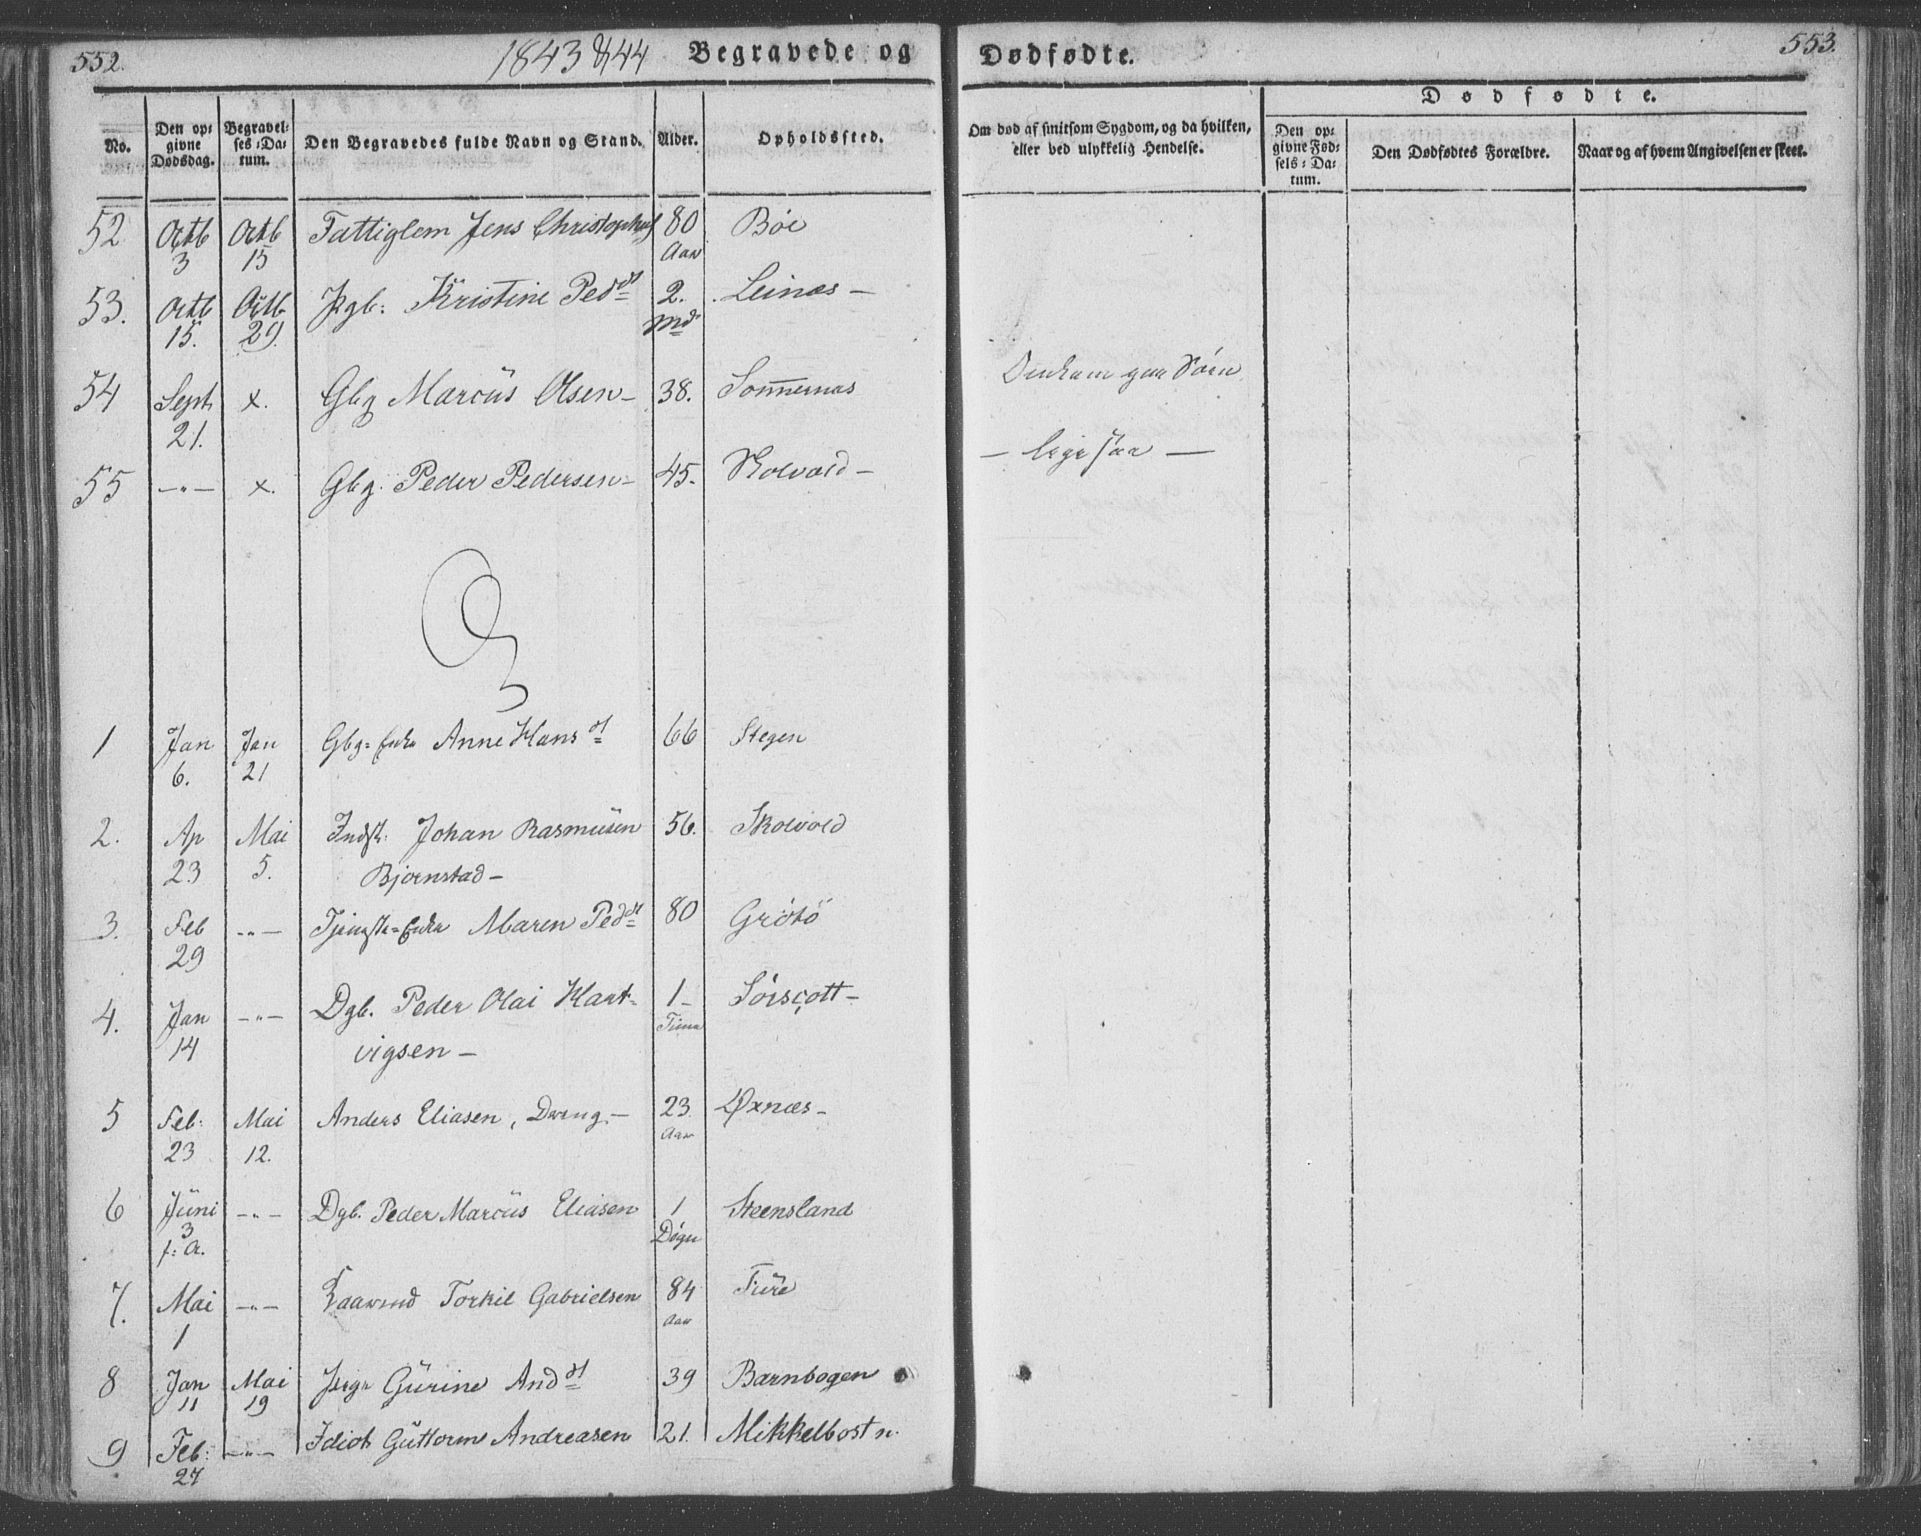 552.
1843 & 44 Begravede og
Dødfødte.
553.
No.
Den opgivne Dødsdag.
Begravelses-Datum.
Den Begravedes fulde Navn og Stand.
Alder.
Opholdssted.
Om død af smitsom Sygdom, og da hvilken, eller ved ulykkelig Hendelse.
Dødfødte.
Den opgivne Fødsels-Datum.
Den Dødfødtes Forældre.
Naar og af hvem Angivelsen er skeet.
52 Octb 3 Octb 15 Fattiglem Jens Christophs 80 Aar Böe
53. Octb 15. Octb 29. Pgb: Kristine Pedd 2. Md Leines –
54 Sept 21. x. Gbg Marcus Olsen – 38. Sommernæs
Omkom paa Söen
55 –„– x. Gbg. Peder Pedersen – 45. Skolvold –
– lige saa –
1 Jan 6. Jan 21 Gbg= Enke Anne Hansd 66 Stegen
2. Ap 23 Mai 5. Indst: Johan Rasmusen 56. Skolvold
Bjornstad –
3. Feb 29 –„– Tjenste=Enke Maren Pedd 80 Grötö
4. Jan 14 –„– Dgb. Peder Olai Hart- 1 – Time Sörscott –
vigsen –
5 Feb: 23 Mai 12. Anders Eliasen, Dreng – 23 Aar Øxnæs –
6 Juni 3 f: A. –„– Dgb. Peder Marcus Eliasen 1 Døgn Steensland
7. Mai 1 –„– Torkil Gabrielsen 84 Aar Fure
8 Jan 11 Mai 19 Pige Gurine Andd 39 Barnbogen
9 Feb: 27 –„– Idiot Guttorm Andreasen 21. Mikkelbostn.